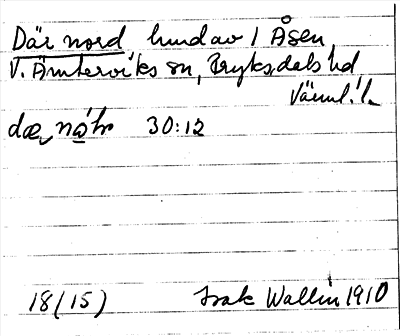 Där nord, lund av 1 Åsen,
V. Ämterviks sn, Fryksdals hd,
Värml. l.
dæ, nớṭṛ 30:12
18 (15) Isak Wallin 1910